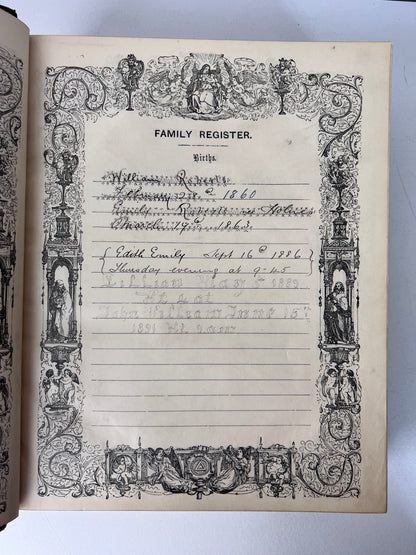 FAMILY REGISTER.
Births.
William Roberts
February 1860
Emily Roberts
March 19th 1863
Edith Emily Sept 16th 1886
Thursday evening at 9-45
Lillian May 5 1889
At
John William June 15th
1891 At 1 am